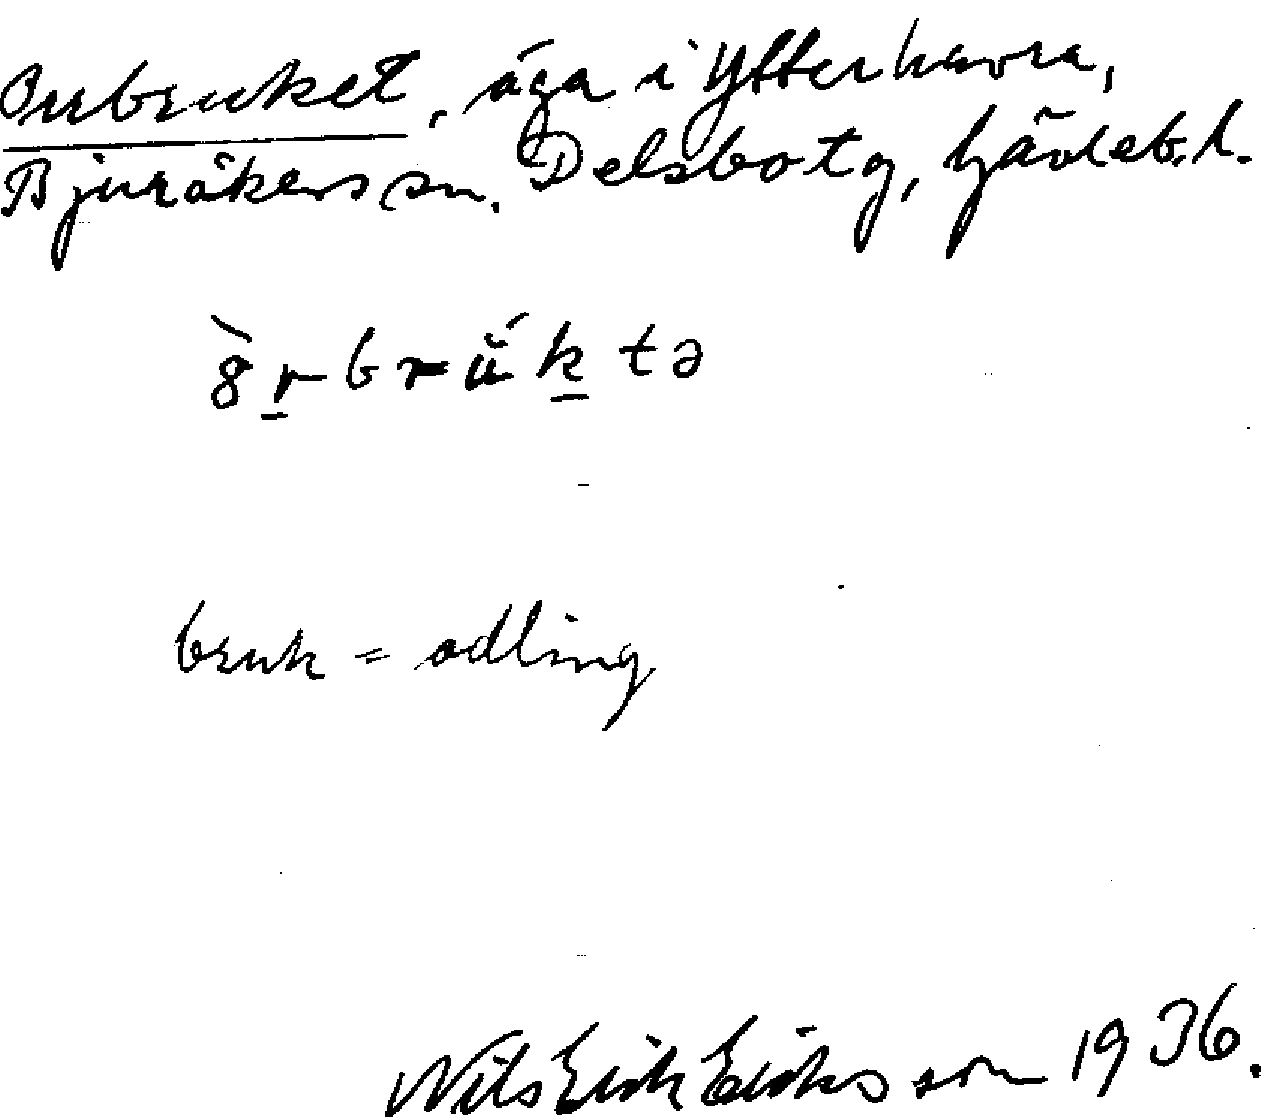 Orrbruket, äga i Ytterhavra,
Bjuråkers sn. Delsbo tg, Gävleb.l.
bruk = odling
Nils Erik Eriksson 1936.